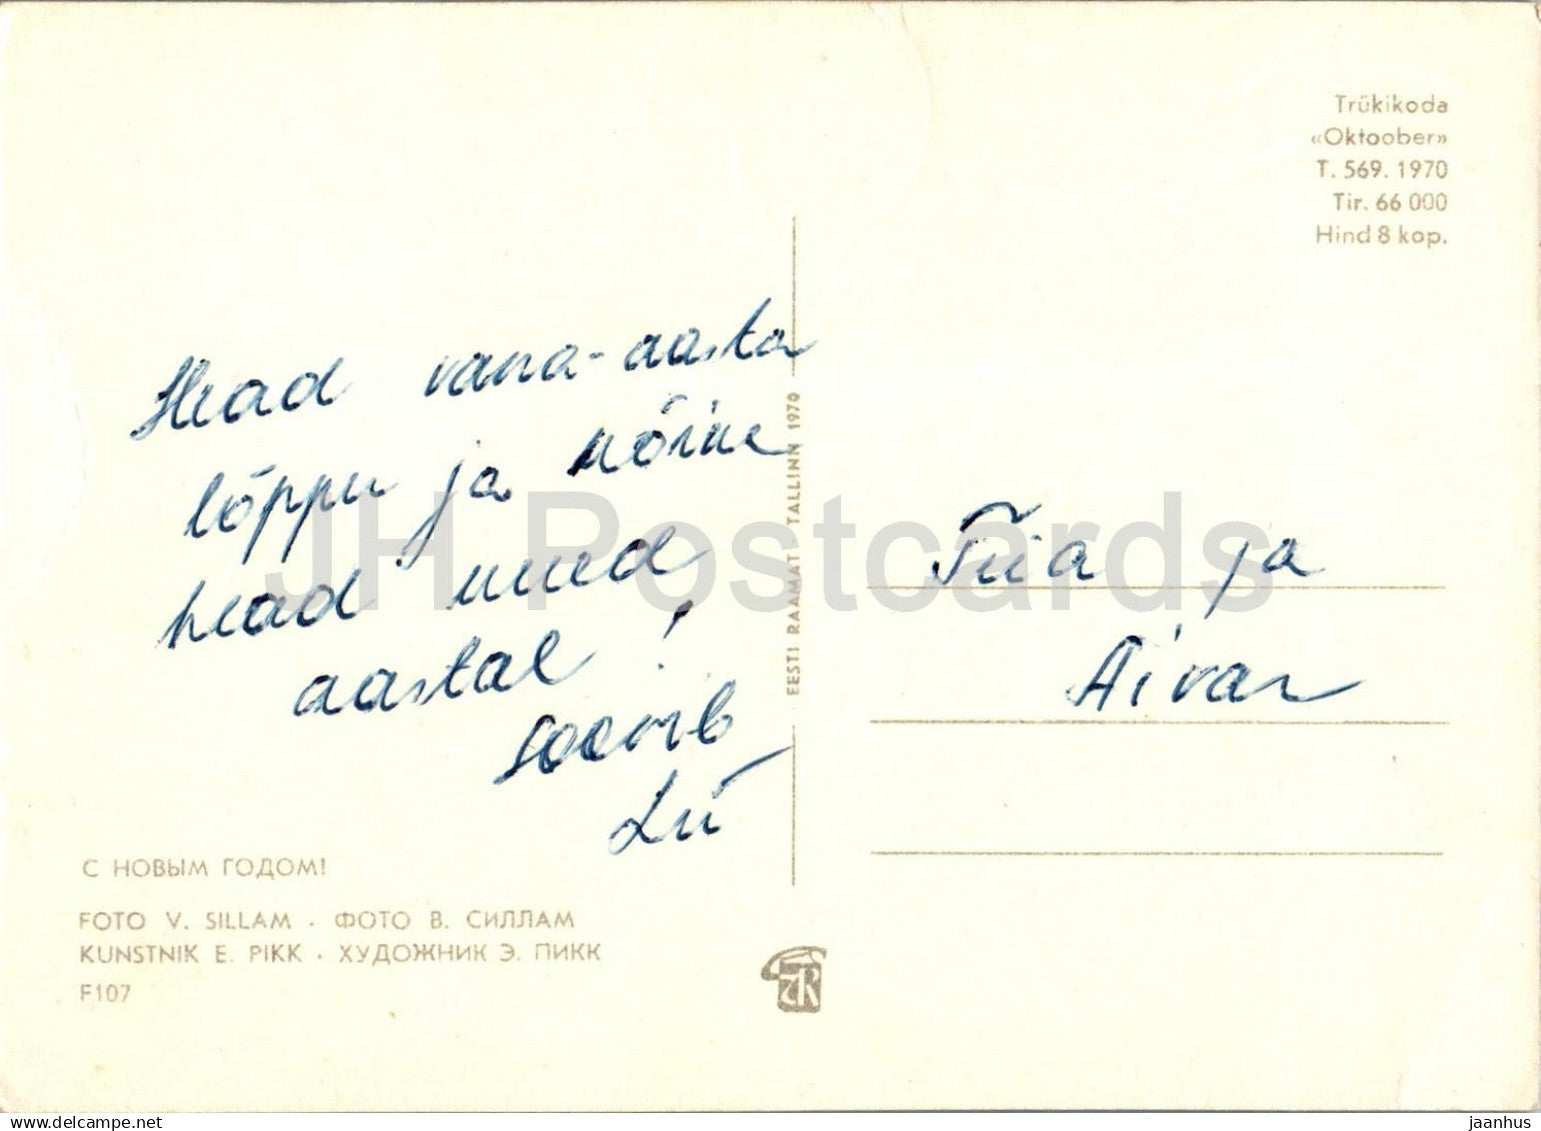 Trükikoda
«Oktoober»
T. 569. 1970
Tir. 66 000
Hind 8 kop.
Head vana-aasta
lõppu ja
head uued
aastal!
soovib
Lii
EESTI RAAMAT · TALLINN 1970
Tiia ja
Aivar
JH Postcards
С НОВЫМ ГОДОМ!
FOTO V. SILLAM · ФОТО В. СИЛЛАМ
KUNSTNIK E. PIKK · ХУДОЖНИК Э. ПИКК
F107
www.delcampe.net
jaanhus